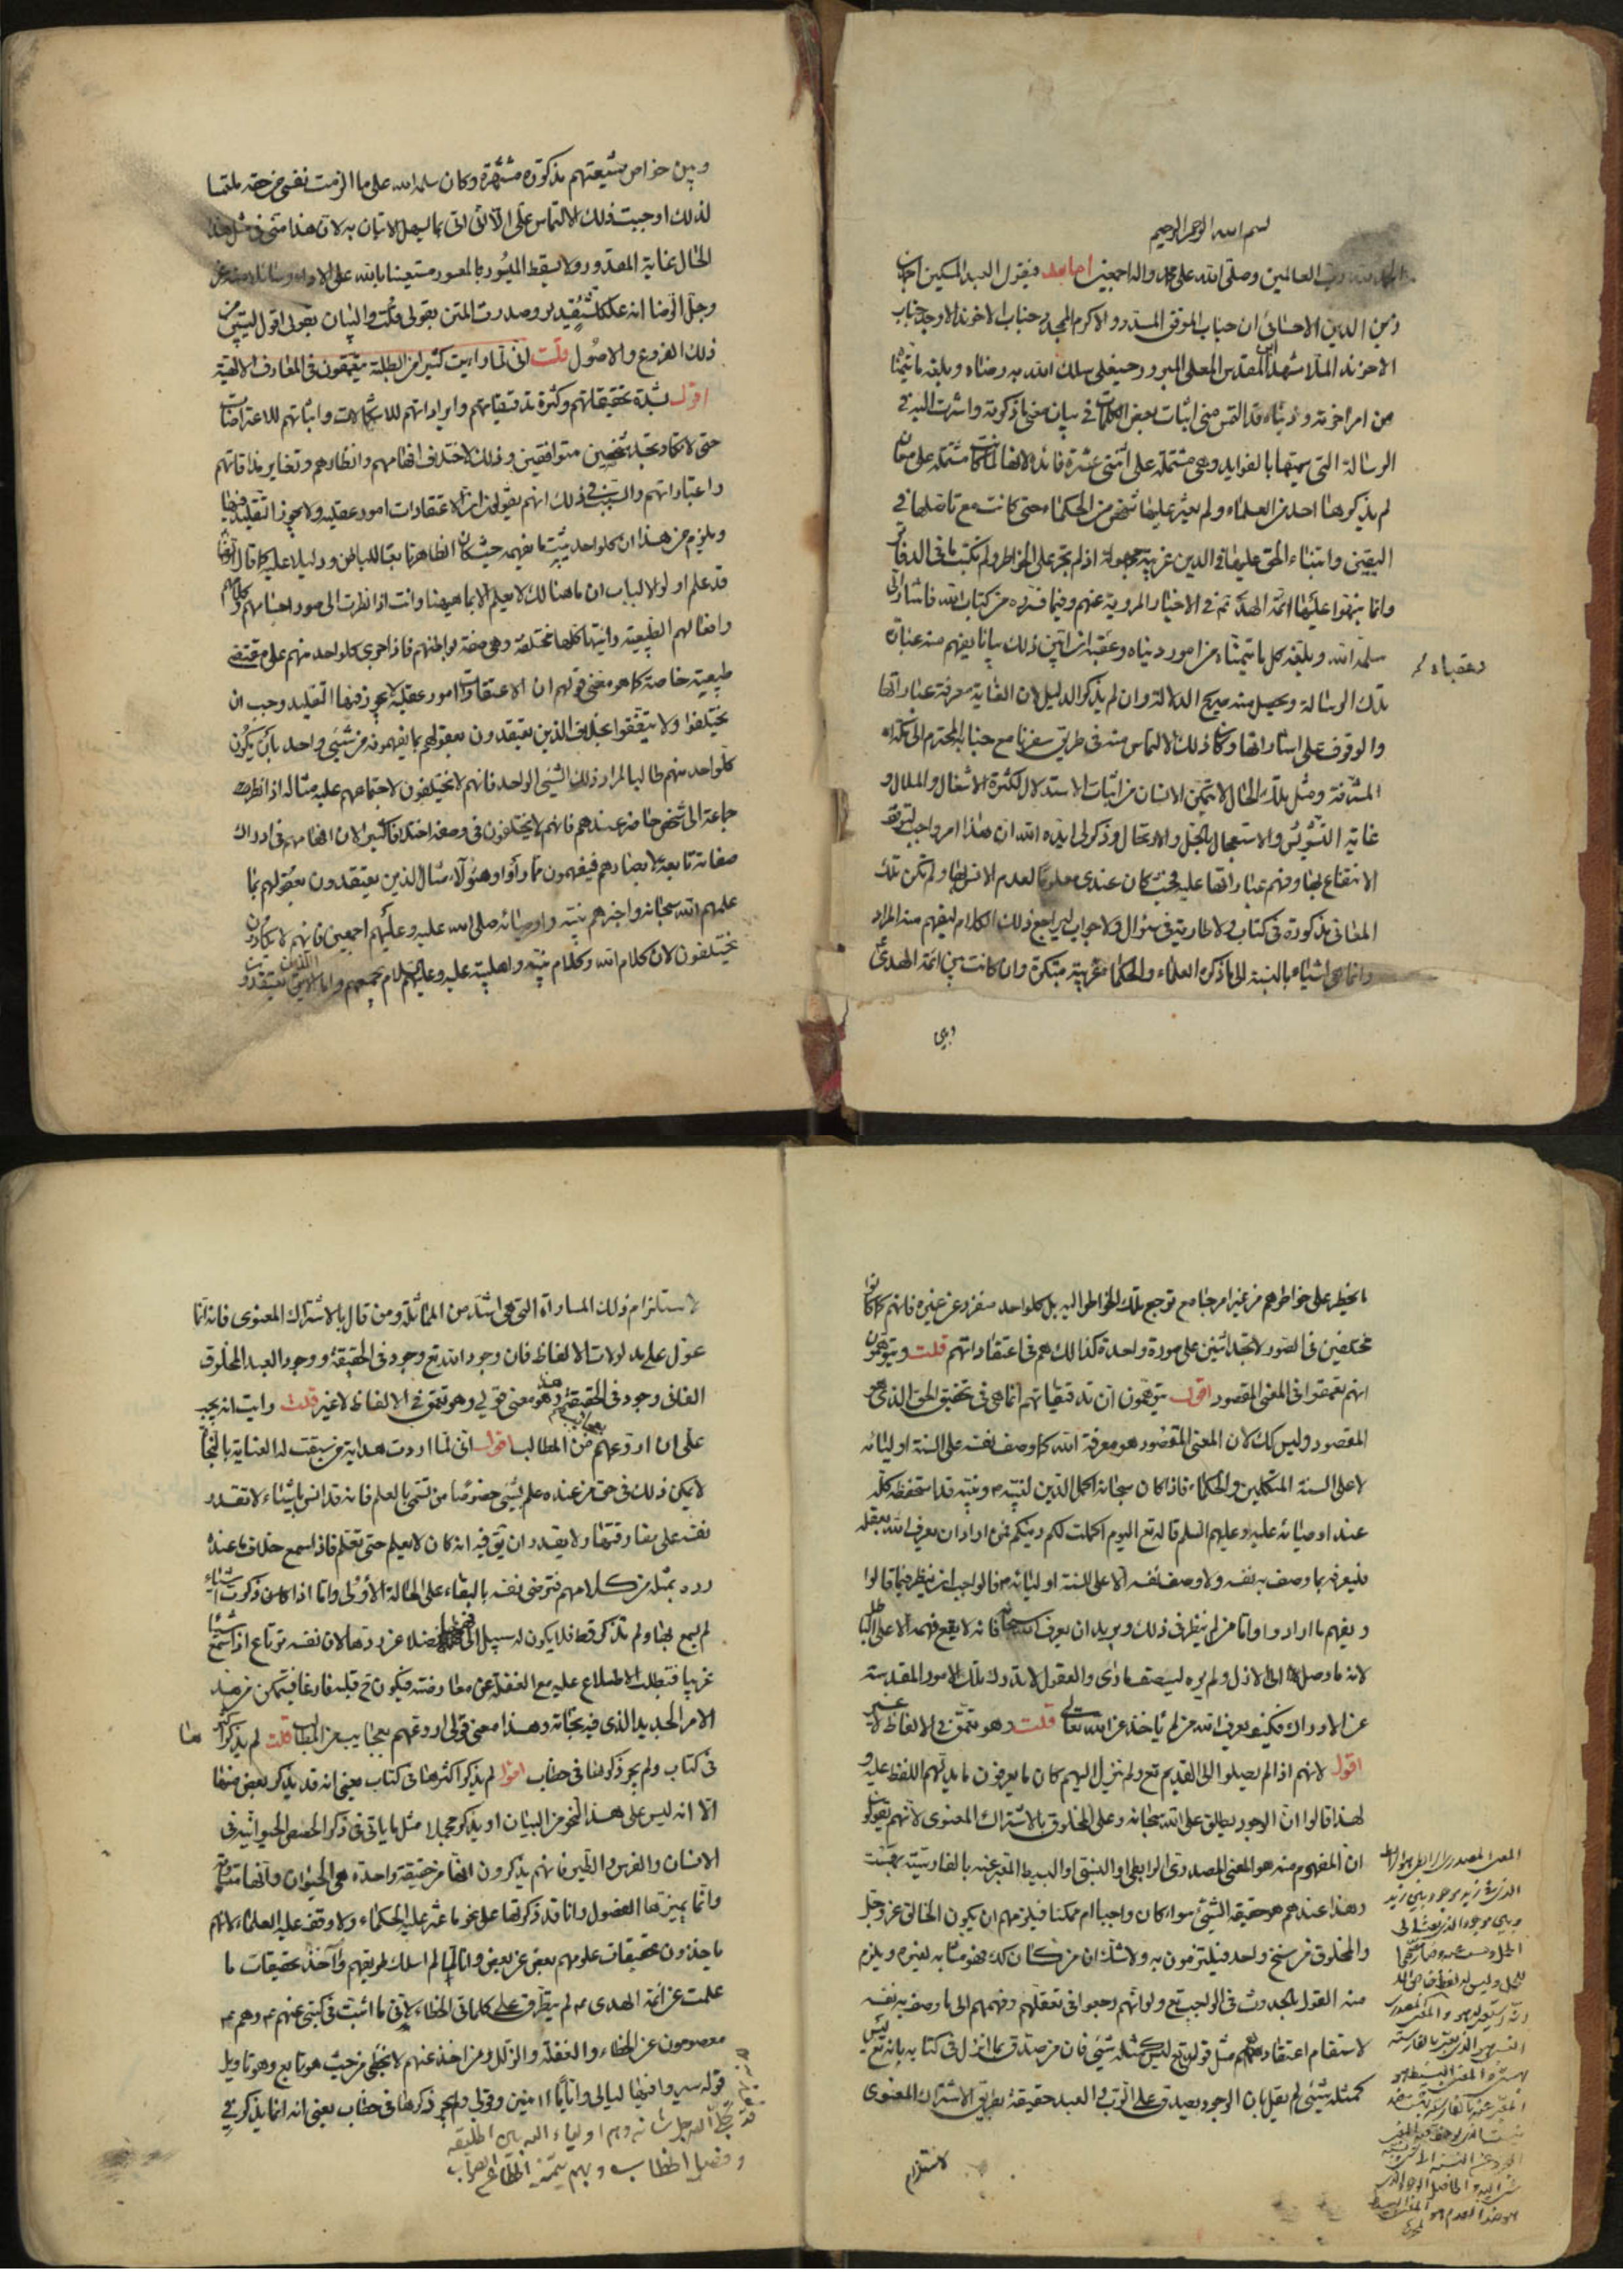 بسم الله الرحمن الرحيم
الحمد لله رب العالمين وصلى الله على محمد واله اجمعين اما بعد فيقول العبد المسكين احمد بن
زين الدين الاحسائي ان جناب الموفق المسدد والاكرم الممجد جناب الاخوند الاوحد جناب
الاخوند الملا مشهد ابن المقدس المعلى المبرور حسينعلي سلك الله به رضاه وبلغه ما يتمناه
من امر اخرته ودنياه قد التمس مني اثبات بعض الكلمات في بيان معنى ما ذكرته واشرت اليه في
الرسالة التي سميتها بالفوايد وهي مشتملة على اثنتي عشرة فائدة لانها لما كانت مشتملة على معان
لم يذكرها احد من العلماء ولم يعثر عليها شخص من الحكماء حتى كانت مع تاصلها في
اليقين وابتناء الحق عليها في الدين غريبة مجهولة اذ لم تجر على الخواطر ولم تكتب في الدفاتر
وانما نبهوا عليها ائمة الهدى ع في الاخبار المروية عنهم وفيما فسروه من كتاب الله فاشار الى
سلمه الله وبلغه كل ما يتمناه من امور دنياه وعقباه ان ابين ذلك بيانا يفهم منه عبارات
وعقباه
تلك الرسالة ويحصل منه صريح الدلالة وان لم يذكر الدليل لان الغاية معرفة عباراتها
والوقوف على اشاراتها وكان ذلك الالتماس منه في طريق سفرنا مع جنابه المحترم الى مكة
المشرفة ومثل تلك الحال لا يتمكن الانسان من اثبات الاستدلال لكثرة الاشغال والملال و
غاية التشويش والاستعجال بالحل والارتحال وذكر لي ايده الله ان هذا امر واجب لتوقف
الانتفاع بها وفهم عباراتها عليه بحيث كان عندي معلوما لعدم الانس بها ولم تكن تلك
المعاني مذكورة في كتاب ولا جارية في سؤال ولا جواب ليراجع ذلك الكلام ليفهم منه المراد
وانما هي اشياء بالنسبة الى ما ذكره العلماء والحكماء غريبة مبتكرة وان كانت بين ائمة الهدى ع
وبين
وبين خواص شيعتهم مذكورة مشتهرة وكان سلمه الله على ما الزمت نفسي من حقه ملتمسا
لذلك اوجبت ذلك الالتماس علي الا اني اتي بما يسهل الاتيان به لان هذا مني في مثل هذا
الحال غاية المقدور ولا يسقط الميسور بالمعسور مستعينا بالله
وجل الرضا انه على كل شيء قدير وصدرت المتن بقولي قلت والبيان بقولي اقول ليتبين من
ذلك الفروع والاصول قلت اني لما رايت كثيرا من الطلبة يتعمقون في المعارف الالهية
اقول شدة تحقيقاتهم وكثرة تدقيقاتهم وايراداتهم للاشكالات واثباتهم للاعتراضات
حتى لا تكاد تجد شخصين متوافقين وذلك لاختلاف افهامهم وانظارهم وتغاير مذاقاتهم
واعتباراتهم والسبب في ذلك انهم يقولون ان الاعتقادات امور عقلية ولا يجوز التقليد فيها
ويلزم من هذا ان كل واحد يثبت ما يفهمه حيث كان الظاهر تابعا للباطن ودليلا عليه كما قال الرضا ع
قد علم اولو الالباب ان ما هنالك لا يعلم الا بما هيهنا وانت اذا نظرت الى صورهم وكلامهم
وافعالهم الطبيعية رايتها كلها مختلفة وهي صفة بواطنهم فاذا جرى كل واحد منهم على مقتضى
طبيعته خاصة كما هو معنى قولهم ان الاعتقادات امور عقلية لا يجوز فيها التقليد وجب ان
يختلفوا ولا يتفقوا بخلاف الذين يعتقدون بعقولهم بما يفهمونه من شيء واحد بان يكون
كل واحد منهم طالبا لمراد ذلك الشيء الواحد فانهم لا يختلفون لاجتماعهم عليه مثاله اذا نظرت
جماعة الى شخص حاضر عندهم فانهم لا يختلفون في وصفه اختلافا كثيرا لان افهامهم في ادراك
صفاته تابعة لابصارهم فيفهمون ما راوا وهؤلاء مثال الذين يعتقدون بعقولهم بما
علمهم الله سبحانه واخبرهم نبيه واوصيائه صلى الله عليه وعليهم اجمعين فانهم لا يكادون
يختلفون لان كلام الله وكلام نبيه واهل بيته عليه وعليهم السلام يجمعهم واما الذين يعتقدون
ما يخطر على خواطرهم من غير امر جامع ترجع تلك الخواطر اليه بل كل واحد منفرد عن غيره فانهم كما كانوا
مختلفين في الصور لا تجد اثنين على صورة واحدة كذلك هم في اعتقاداتهم قلت ويتوهمون
انهم تعمقوا في المعنى المقصود اقول يتوهمون ان تدقيقاتهم انما هي في تحقيق الحق الذي هو
المقصود وليس كك لان المعنى المقصود هو معرفة الله كما وصف نفسه على السنة اوليائه
لا على السنة المتكلمين والحكماء فاذا كان سبحانه اكمل الدين لنبيه ص ونبيه قد استحفظه كله
عند اوصيائه عليه وعليهم السلم قال تع اليوم اكملت لكم دينكم فمن اراد ان يعرف الله بعقله
فليعرفه بما وصف به نفسه ولا وصف نفسه الا على السنة اوليائه فالواجب ان ينظر فيما قالوا
ويفهم ما ارادوا واما من لم ينظر في ذلك ويريد ان يعرف الله سبحانه فانه لا يقع فهمه الا على الباطل
لانه ما وصل الى الازل ولم يره ليصف ما راى والعقول لا تدرك تلك الامور المقدسة
عن الادراك فكيف يعرف الله من لم ياخذ عن الله تعالى قلت وهو تعمق في الالفاظ لا غير
اقول لانهم اذا لم يصلوا الى القديم تع ولم ينزل اليهم كان ما يعرفون ما يدلهم اللفظ عليه و
لهذا قالوا ان الوجود يطلق على الله سبحانه وعلى المخلوق بالاشتراك المعنوي لانهم يقولون
ان المفهوم منه هو المعنى المصدري الرابطي او النسبي او البسيط المعبر عنه بالفارسية بهست
وهذا عندهم هو حقيقة الشيء سواء كان واجبا ام ممكنا فيلزمهم ان يكون الخالق عز وجل
والمخلوق من سنخ واحد فيلتزمون به ولا شك ان من كان كك فهو مشابه لغيره ويلزم
منه القول بالحدوث في الواجب تع ولو انهم رجعوا في تعقلهم وفهمهم الى ما وصف به نفسه
لاستقام اعتقادهم مثل قوله تع ليس كمثله شيء فان من صدق بما انزل في كتابه بانه تع ليس
كمثله شيء لم يقل بان الوجود يصدق على الرب والعبد حقيقة بطريق الاشتراك المعنوي
لاستلزام
لاستلزام ذلك المساواة التي هي اشد من المماثلة ومن قال بالاشتراك المعنوي فانه انما
عول على مدلولات الالفاظ فان وجود الله تع وجود في الحقيقة ووجود العبد المخلوق
الفاني وجود في الحقيقة وهذا هو معنى قولي وهو تعمق في الالفاظ لا غير قلت رايت انه يجب
علي ان اروعهم بعجائب من المطالب اقول اني لما اردت هداية من سبقت له العناية بالنجاة
لا يمكن ذلك في حق من عنده علم بشيء خصوصا من تسمى بالعلم فانه قد انس باشياء لا تقدر
نفسه على مفارقتها ولا يقدر ان يقر فيه انه كان لا يعلم حتى تعلم فاذا سمع خلاف ما عنده
رده بمثله من كلامهم فترضى نفسه بالبقاء على الحالة الاولى واما اذا ذكرت اشياء
لم يسمع بها ولم تذكر قط فلا يكون له سبيل الى فضلا عن ردها لان نفسه ترتاع اذا سمع شيئا
غريبا فتطلب الاطلاع عليه مع الغفلة عن معارضته فيكون ح قلبه فارغا فيتمكن فيه
الامر الجديد الذي فيه نجاته وهذا معنى قولي اروعهم بعجايب من المطالب قلت لم يذكر اكثرها
في كتاب ولم يجر ذكرها في خطاب اقول لم يذكر اكثرها في كتاب يعني انه قد يذكر بعض منها
الا انه ليس على هذا النحو من البيان او يذكر مجملا مثل ما ياتي في ذكر الحصص الحيوانية في
الانسان والفرس والطير فانهم يذكرون انها من حقيقة واحدة هي الحيوان وانها متساوية
وانما يميزها الفصول وانا قد ذكرتها على نحو ما عثر عليه الحكماء ولا وقف عليه العلماء لانهم
ياخذون تحقيقات علومهم بعض عن بعض وانا لما لم اسلك طريقهم واخذت تحقيقات ما
علمت عن ائمة الهدى ع لم يتطرق على كلماتي الخطاء لاني ما اثبت في كتبي عنهم ع وهم ع
معصومون عن الخطاء والغفلة والزلل ومن اخذ عنهم لا يخطي من حيث هو تابع وهو تاويل
قوله سيروا فيها ليالي واياما امنين وقولي ولم يجر ذكرها في خطاب يعني انه انما يذكر في